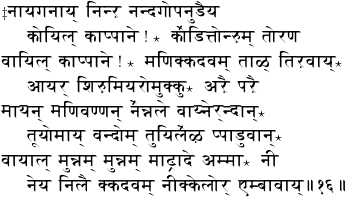 ‡नायगनाय् निन्ऱ नन्दगोपनुडैय
कोयिल् काप्पाने!⋆ कॊडित्तोन्ऱुम् तोरण
वायिल् काप्पाने!⋆ मणिक्कदवम् ताळ् तिऱवाय्⋆
आयर् शिऱुमियरोमुक्कु⋆ अऱै पऱै
मायन् मणिवण्णन् नॆन्नले वाय्नेरन्दान्⋆
तूयोमाय् वन्दोम् तुयिलॆळ प्पाडुवान्⋆
वायाल् मुन्नम् मुन्नम् माट्रादे अम्मा⋆ नी
नेय निलै क्कदवम् नीक्केलोर् एम्बावाय्॥१६॥